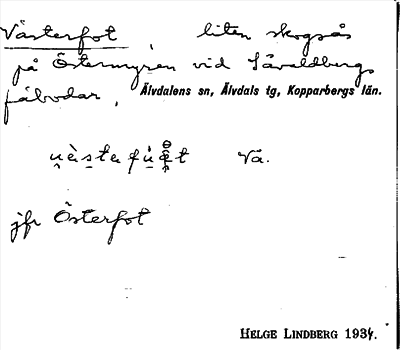 Västerfot, liten skogsås
på Östermyren vid Såvaldbergs
fäbodar, Älvdalens sn, Älvdals tg, Kopparbergs län.
Vå.
jfr Österfot
HELGE LINDBERG 1934.